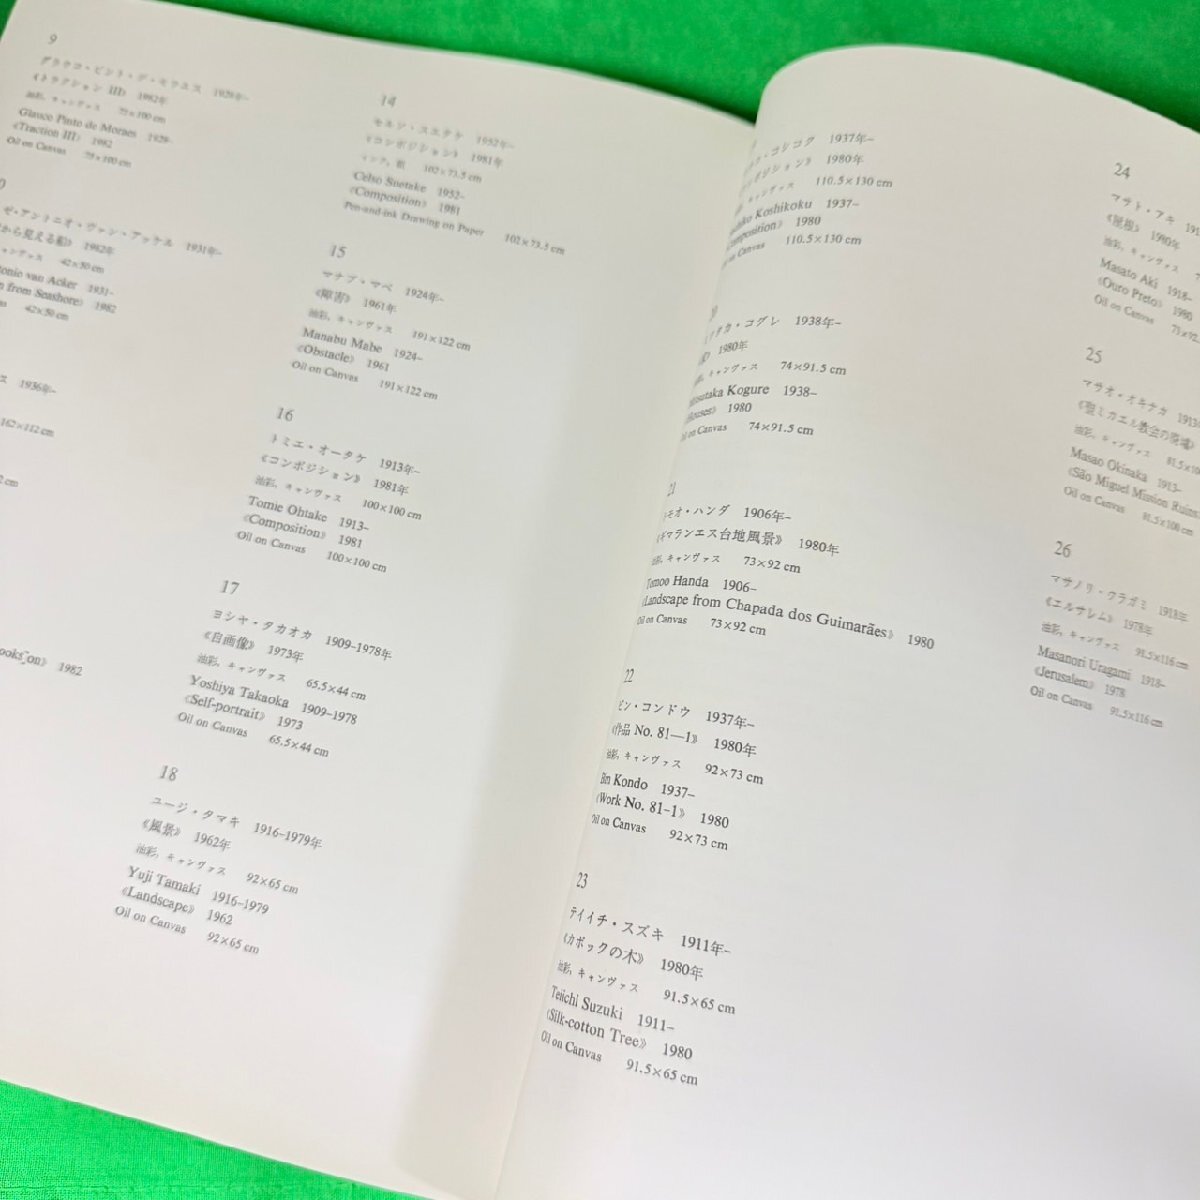 9
グラウコ・ピント・デ・モラエス 1928年–
《トラクション III》 1982年
油彩, キャンヴァス 79×100 cm
Glauco Pinto de Moraes 1928–
《Traction III》 1982
Oil on Canvas 79×100 cm
ゼ・アントニオ・ヴァン・アッケル 1931年–
から見える船》 1982年
キャンヴァス 42×50 cm
tonio van Acker 1931–
from Seashore》 1982
42×50 cm
ス 1936年–
162×112 cm
2 cm
1982
14
セルソ・スエタケ 1952年–
《コンポジション》 1981年
インク, 紙 102×73.5 cm
Celso Suetake 1952–
《Composition》 1981
Pen-and-ink Drawing on Paper 102×73.5 cm
15
マナブ・マベ 1924年–
《障害》 1961年
油彩, キャンヴァス 191×122 cm
Manabu Mabe 1924–
《Obstacle》 1961
Oil on Canvas 191×122 cm
16
トミエ・オータケ 1913年–
《コンポジション》 1981年
油彩, キャンヴァス 100×100 cm
Tomie Ohtake 1913–
《Composition》 1981
Oil on Canvas 100×100 cm
17
ヨシヤ・タカオカ 1909–1978年
《自画像》 1973年
油彩, キャンヴァス 65.5×44 cm
Yoshiya Takaoka 1909–1978
《Self-portrait》 1973
Oil on Canvas 65.5×44 cm
18
ユージ・タマキ 1916–1979年
《風景》 1962年
油彩, キャンヴァス 92×65 cm
Yuji Tamaki 1916–1979
《Landscape》 1962
Oil on Canvas 92×65 cm
カ・コシコク 1937年–
ンポジション》 1980年
キャンヴァス 110.5×130 cm
Koshikoku 1937–
omposition》 1980
on Canvas 110.5×130 cm
タカ・コグレ 1938年–
1980年
キャンヴァス 74×91.5 cm
utaka Kogure 1938–
ouses》 1980
Oil on Canvas 74×91.5 cm
21
トモオ・ハンダ 1906年–
ギマランエス台地風景》 1980年
油彩, キャンヴァス 73×92 cm
Tomoo Handa 1906–
《Landscape from Chapada dos Guimarães》 1980
Oil on Canvas 73×92 cm
22
ビン・コンドウ 1937年–
《作品 No. 81—1》 1980年
油彩, キャンヴァス 92×73 cm
Bin Kondo 1937–
《Work No. 81–1》 1980
Oil on Canvas 92×73 cm
23
テイイチ・スズキ 1911年–
《カポックの木》 1980年
油彩, キャンヴァス 91.5×65 cm
Teiichi Suzuki 1911–
《Silk-cotton Tree》 1980
Oil on Canvas 91.5×65 cm
24
マサト・アキ 191
《屋根》 1980年
油彩, キャンヴァス
Masato Aki 1918–
《Ouro Preto》 1980
Oil on Canvas 73×92.
25
マサオ・オキナカ 1913年
《聖ミカエル教会の廃墟》
油彩, キャンヴァス 91.5×100
Masao Okinaka 1913–
《São Miguel Mission Ruins》
Oil on Canvas 91.5×100 cm
26
マサノリ・ウラガミ 1918年
《エルサレム》 1978年
油彩, キャンヴァス 91.5×116 cm
Masanori Uragami 1918–
《Jerusalem》 1978
Oil on Canvas 91.5×116 cm